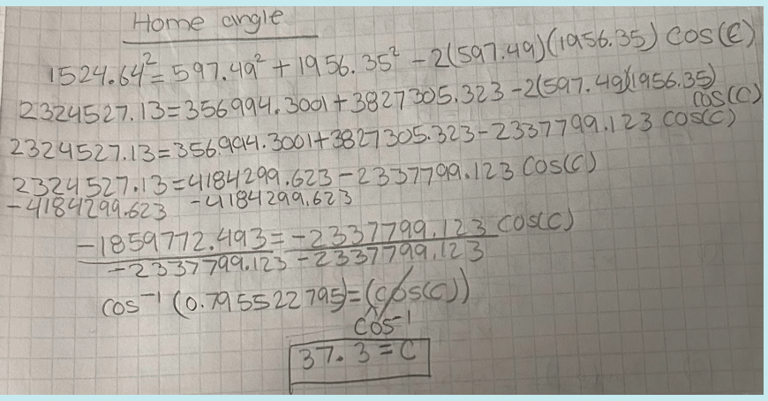 Home angle
1524.64²=597.49²+1956.35²-2(597.49)(1956.35) cos(C)
2324527.13=356994.3001+3827305.323-2(597.49)(1956.35)
cos(C)
2324527.13=356994.3001+3827305.323-2337799.123 cos(C)
2324527.13=4184299.623-2337799.123 cos(C)
-4184299.623 -4184299.623
-1859772.493=-2337799.123 cos(C)
-2337799.123 -2337799.123
cos⁻¹(0.795522795)=(cos(C))
cos⁻¹
37.3=C